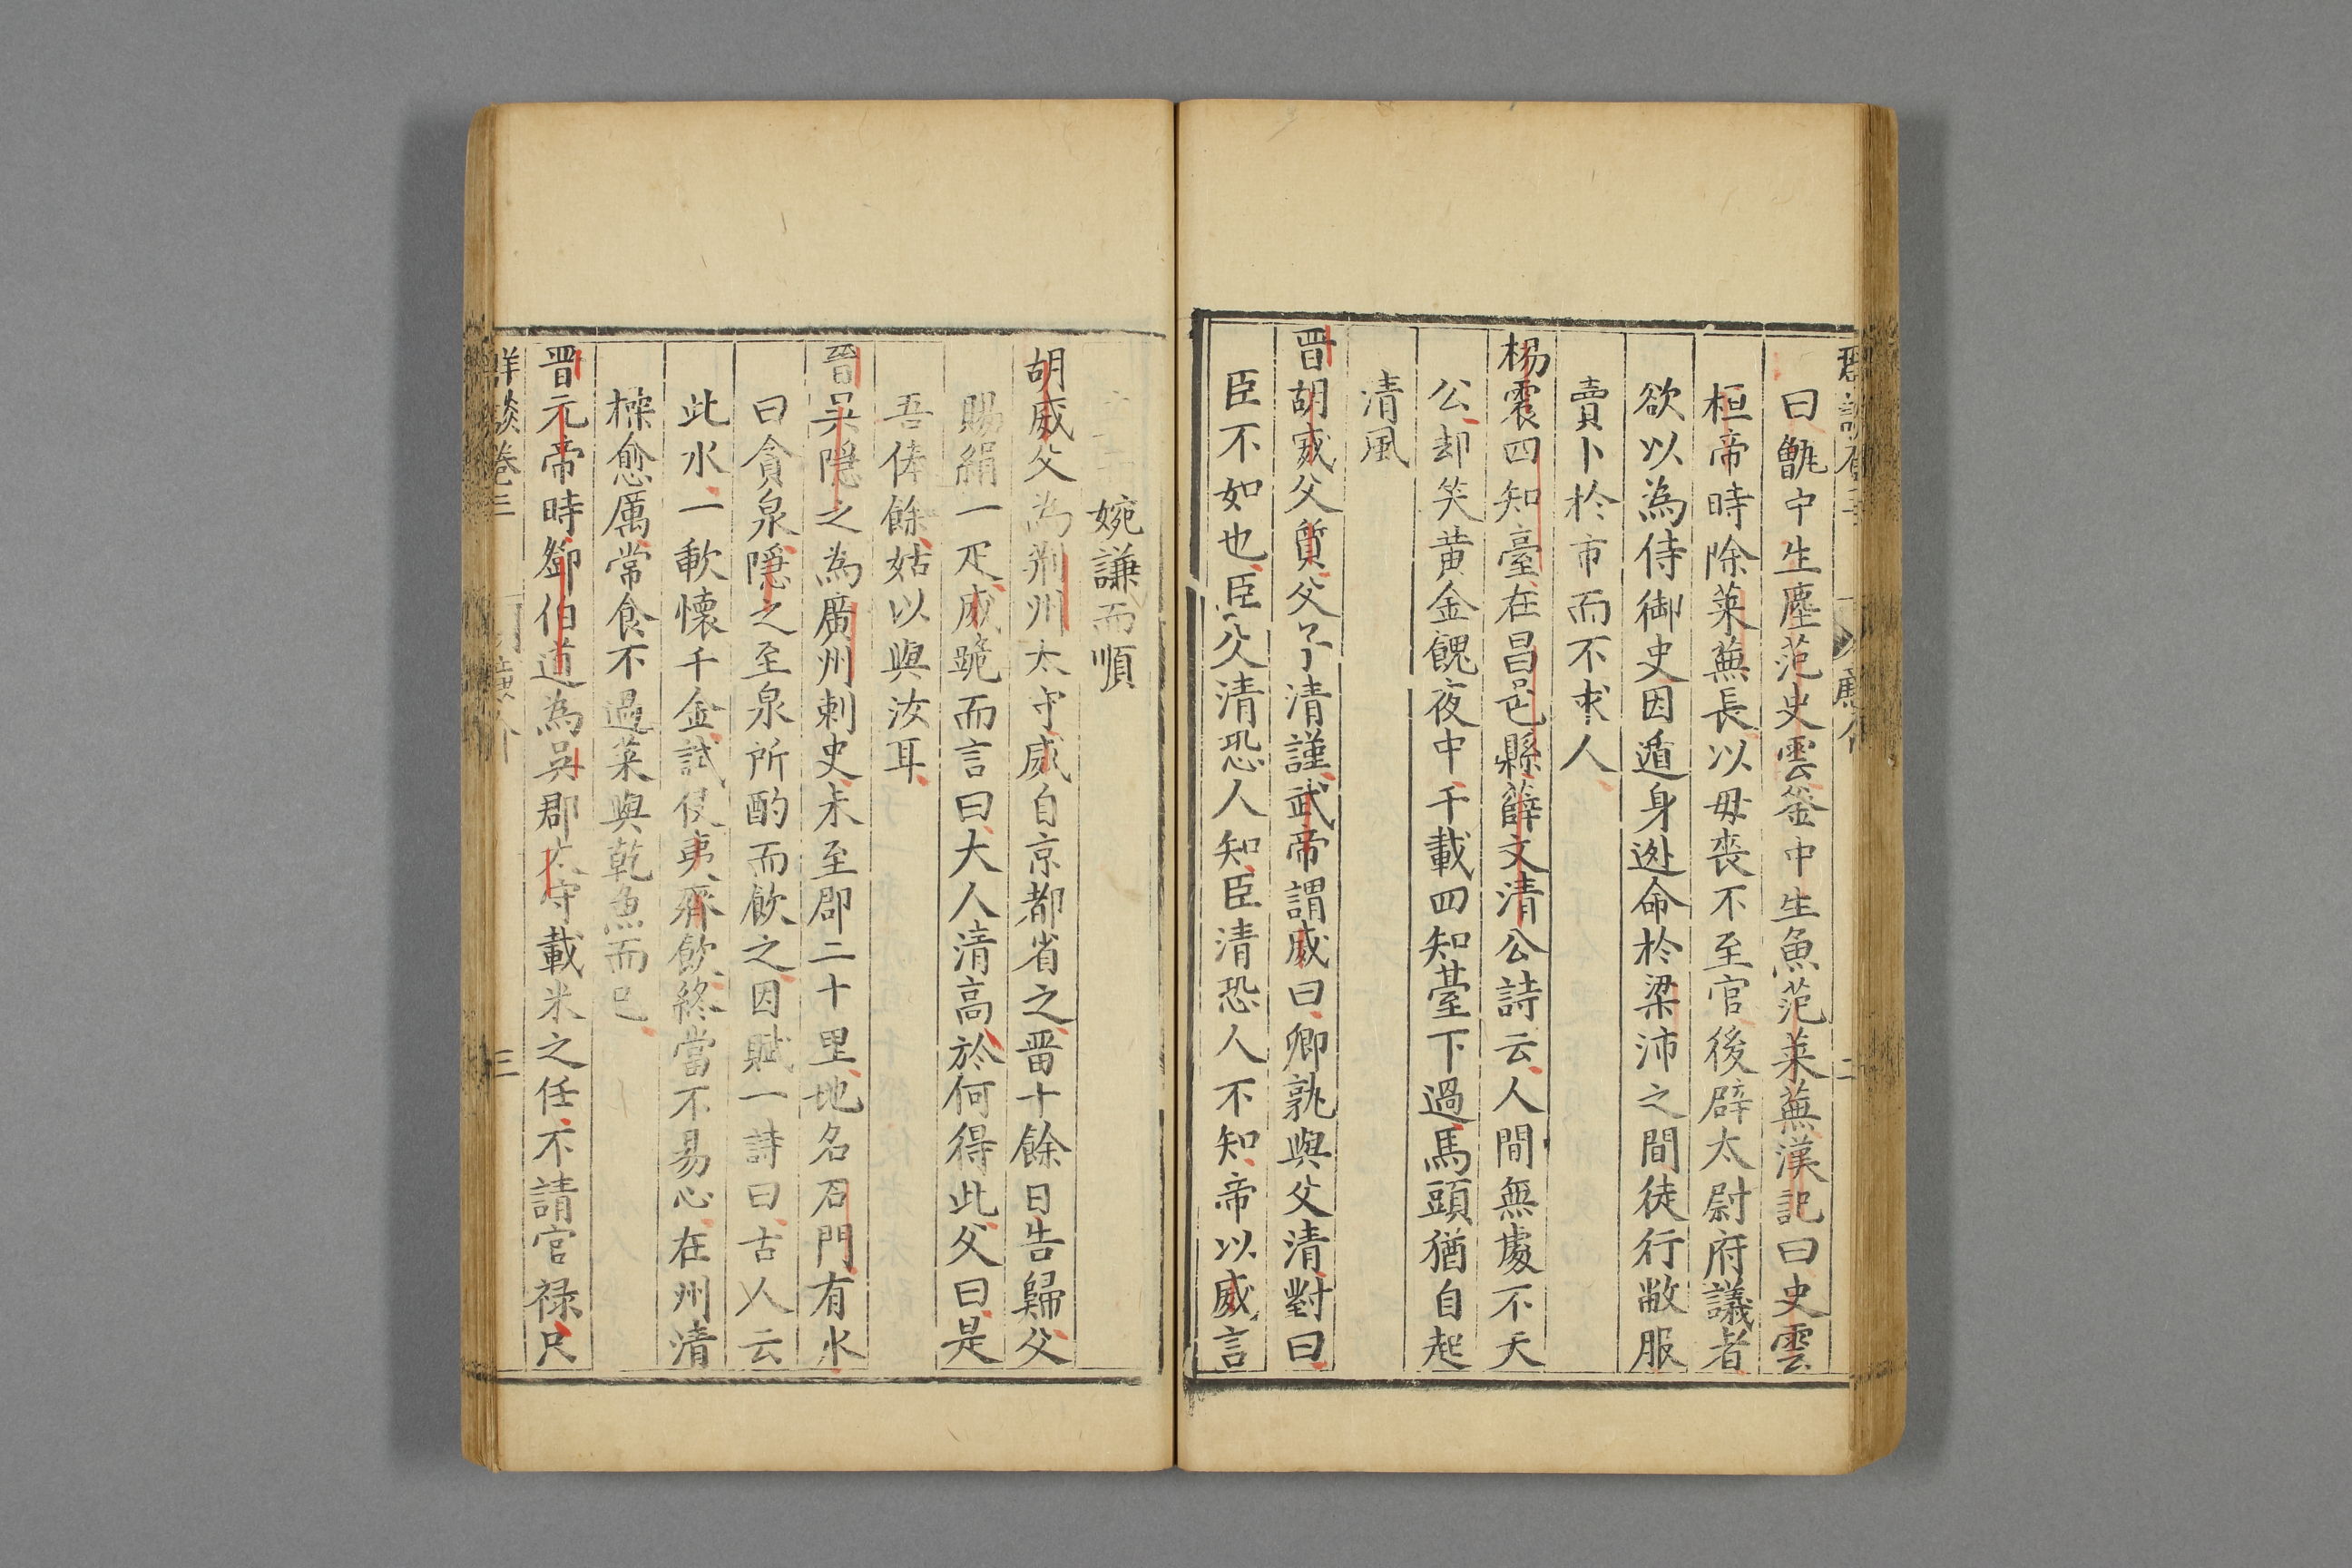 曰甑中生塵范史雲釜中生魚范萊蕪漢記曰史雲
桓帝時除萊蕪長以毋喪不至官後辟太尉府議者
欲以為侍御史因遁身逊命於梁沛之間徒行敝服
賣卜於市而不求人
楊震四知臺在昌邑縣薛文清公詩云人間無處不天
公却笑黄金餽夜中千載四知臺下過馬頭猶自起
清風
晋胡威父質父子清謹武帝謂威曰卿孰與父清對曰
臣不如也臣父清恐人知臣清恐人不知帝以威言
婉謙而順
胡威父為荆州太守威自京都省之畱十餘日告歸父
賜絹一疋威跪而言曰大人清高於何得此父曰是
吾俸餘姑以與汝耳
晋吳隱之為廣州刺史未至郡二十里地名石門有水
曰貪泉隱之至泉所酌而飲之因賦一詩曰古人云
此水一歃懷千金試使夷齊飲終當不易心在州清
操愈厲常食不過菜與乾魚而已
晋元帝時鄧伯道為吳郡太守載米之任不請官禄只
詳談卷三 三